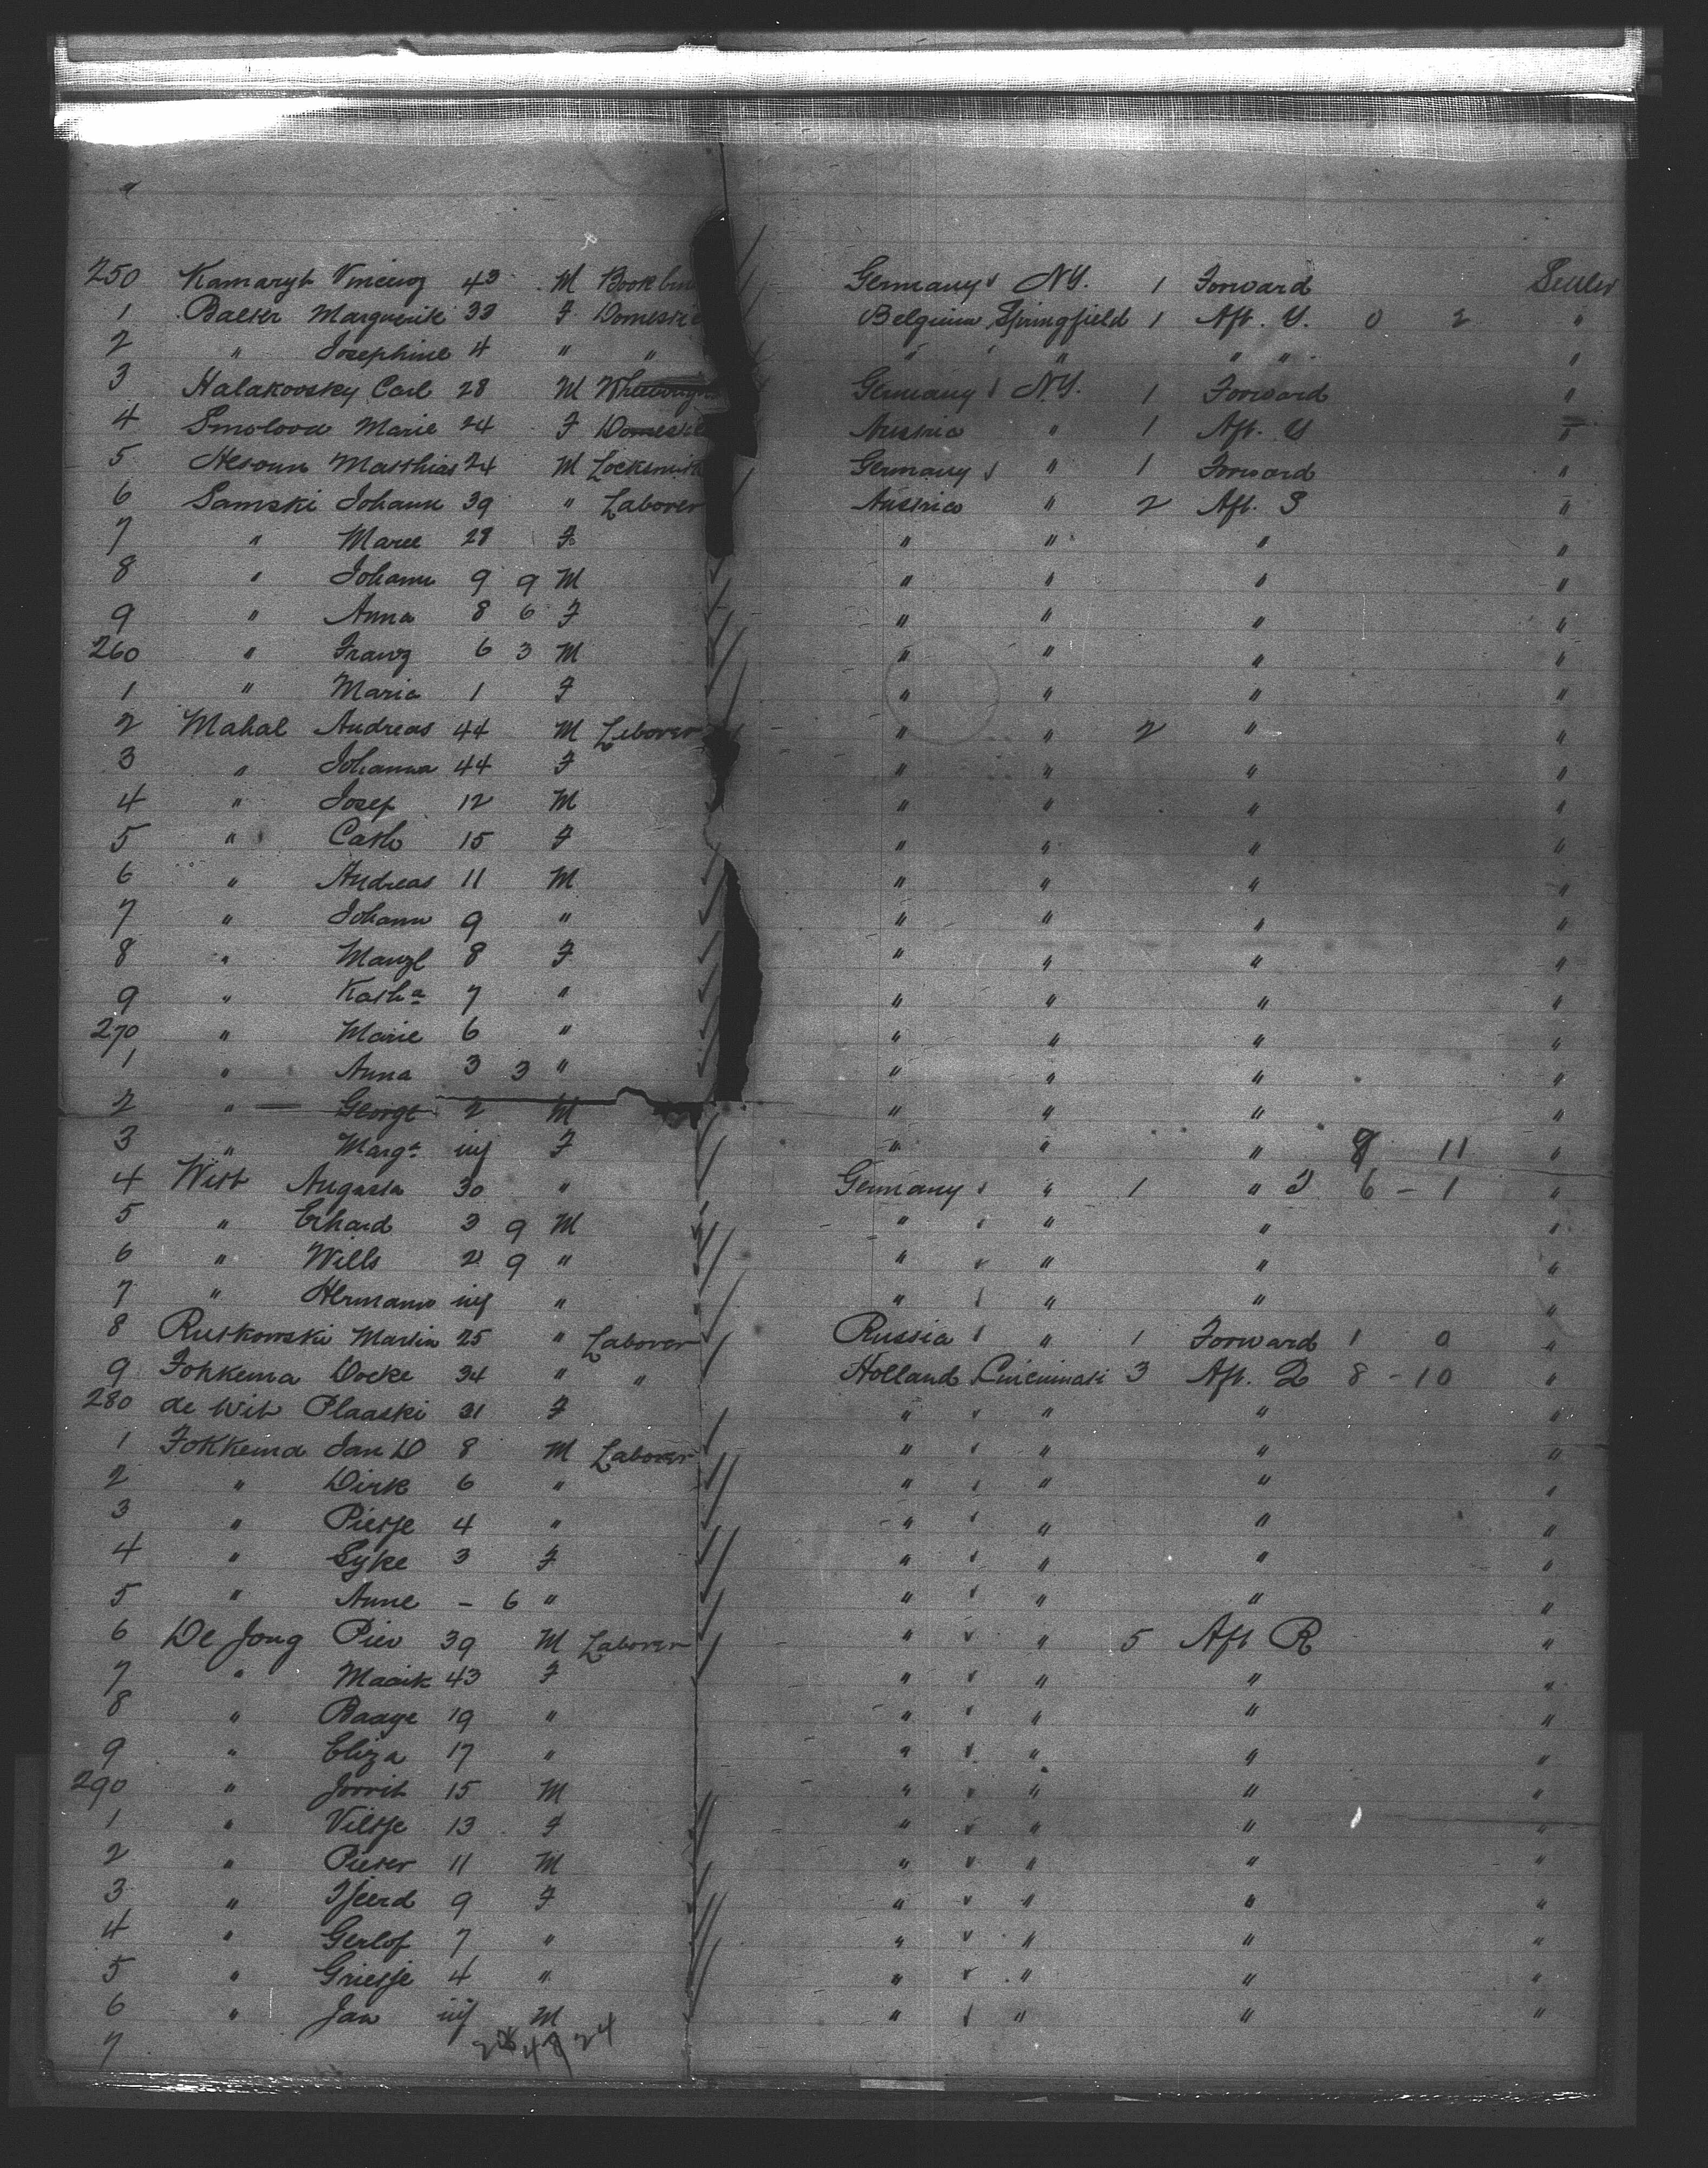 250 Kamaryt Vincenz 43 M Bookbin Germany NY. 1 Forward Settler
1 Balter Marguerite 33 F Domestic Belgium Springfield 1 Aft. Y. 0 2 "
2 " Josephine 4 " " " " " " "
3 Halakovsky Carl 28 M Wheelwright Germany NY. 1 Forward "
4 Smolova Marie 24 F Domestic Austria " 1 Aft. Y "
5 Hesoun Matthias 24 M Locksmith Germany " 1 Forward "
6 Samski Johann 39 " Laborer Austria " 2 Aft. S "
7 " Marie 28 F " " " "
8 " Johann 9 9 M " " " "
9 " Anna 8 6 F " " " "
260 " Franz 6 3 M " " " "
1 " Maria 1 F " " " "
2 Mahal Andreas 44 M Laborer " " 2 " "
3 " Johanna 44 F " " " "
4 " Josef 12 M " " " "
5 " Cath 15 F " " " "
6 " Andreas 11 M " " " "
7 " Johann 9 " " " " "
8 " Manzl 8 F " " " "
9 " Katha 7 " " " " "
270 " Marie 6 " " " " "
1 " Anna 3 3 " " " " "
2 " George 2 M " " " "
3 " Marga inf F " " " 8 11 "
4 Witt Augusta 30 " Germany " 1 " 2 6 - 1 "
5 " Erhard 3 9 M " " " "
6 " Wills 2 9 " " " " "
7 " Hermann inf " " " " "
8 Rutkowski Martin 25 " Laborer Russia " 1 Forward 1 0 "
9 Fokkema Docke 34 " " Holland Cincinnati 3 Aft. Q 8 - 10 "
280 de Wit Plaaski 31 F " " " "
1 Fokkema Jan D 8 M Laborer " " " "
2 " Dirk 6 " " " " "
3 " Pietje 4 " " " " "
4 " Syke 3 F " " " "
5 " Anne - 6 " " " " "
6 De Jong Pier 39 M Laborer " " 5 Aft R "
7 " Maaik 43 F " " " "
8 " Baaye 19 " " " " "
9 " Eliza 17 " " " " "
290 " Jorrit 15 M " " " "
1 " Viltje 13 F " " " "
2 " Pieter 11 M " " " "
3 " Tjeerd 9 F " " " "
4 " Gerlof 7 " " " " "
5 " Grietje 4 " " " " "
6 " Jan inf M " " " "
7